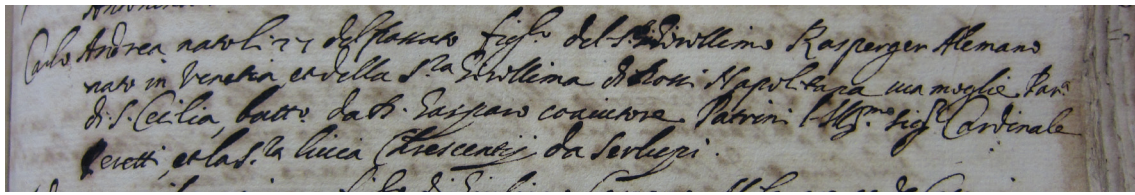 Carlo Andrea nato li 27 del passato figl.o del S.r Girollimo Kasperger Alemano
nato in Venetia et della S.ra Girollima di Rossi Napolitana sua moglie Par.a
di S. Cecilia, batt.o da D. Gasparo coaiutore Patrini l'Ill.mo Sig.r Cardinale
Peretti, et la S.ra Livia Crescentij da Serlupi.